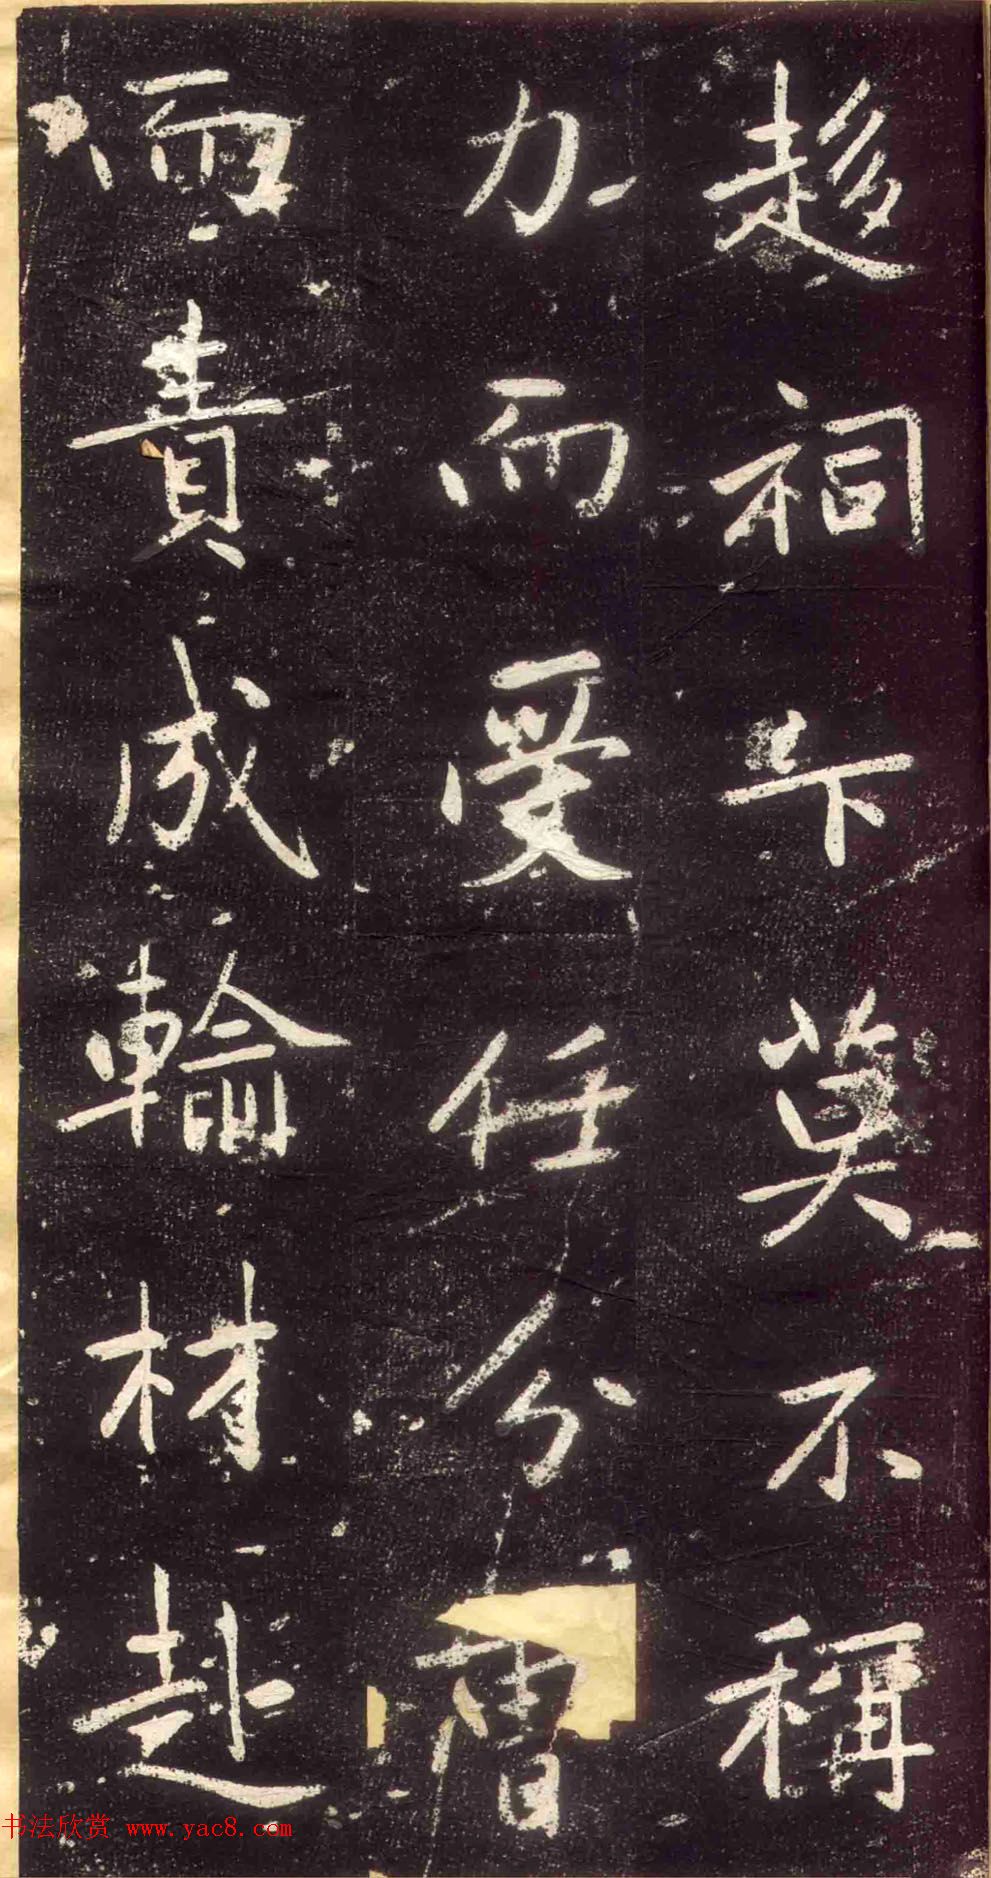 趍祠下莫不稱
力而受任分曹
而責成輸材赴
书法欣赏 www.yac8.com